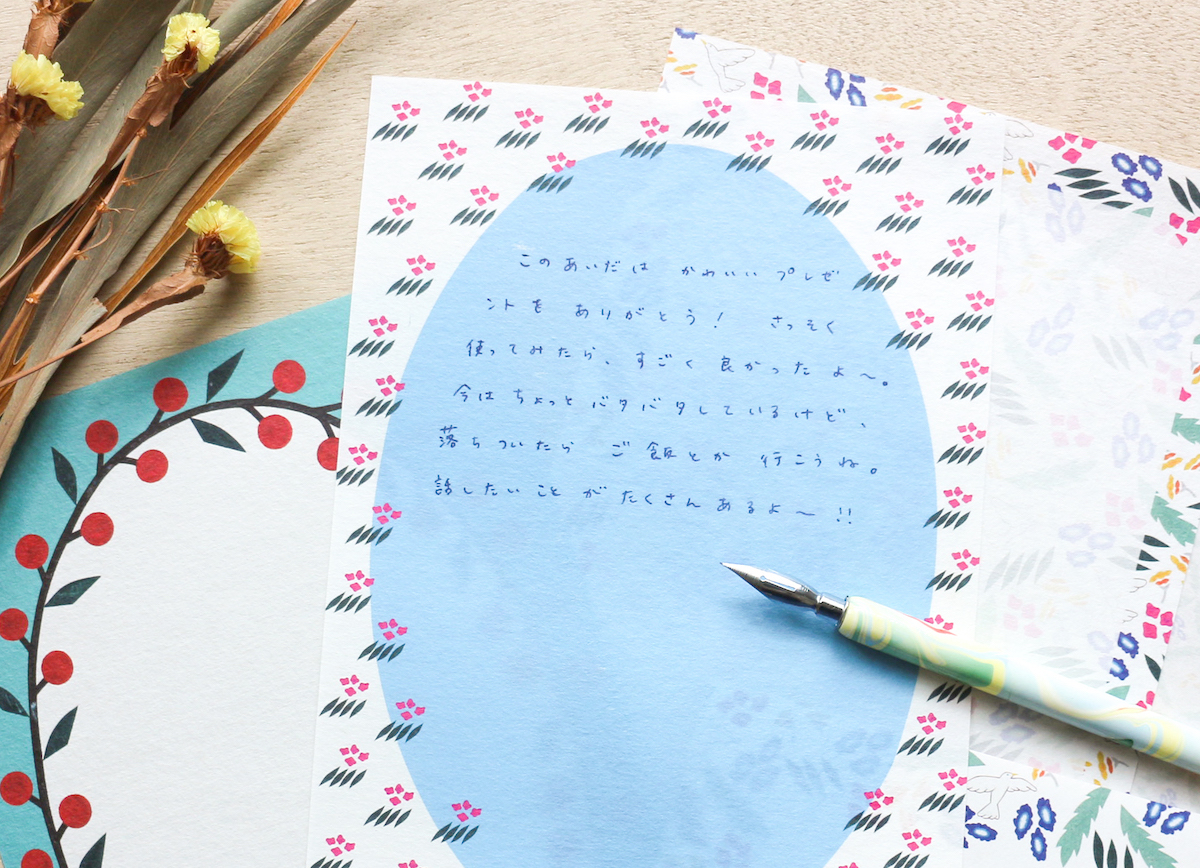 このあいだは かわいいプレゼ
ントを ありがとう! さっそく
使ってみたら、すごく良かったよ〜。
今はちょっとバタバタしているけど、
落ちついたら ご飯とか 行こうね。
話したいことがたくさんあるよ〜!!